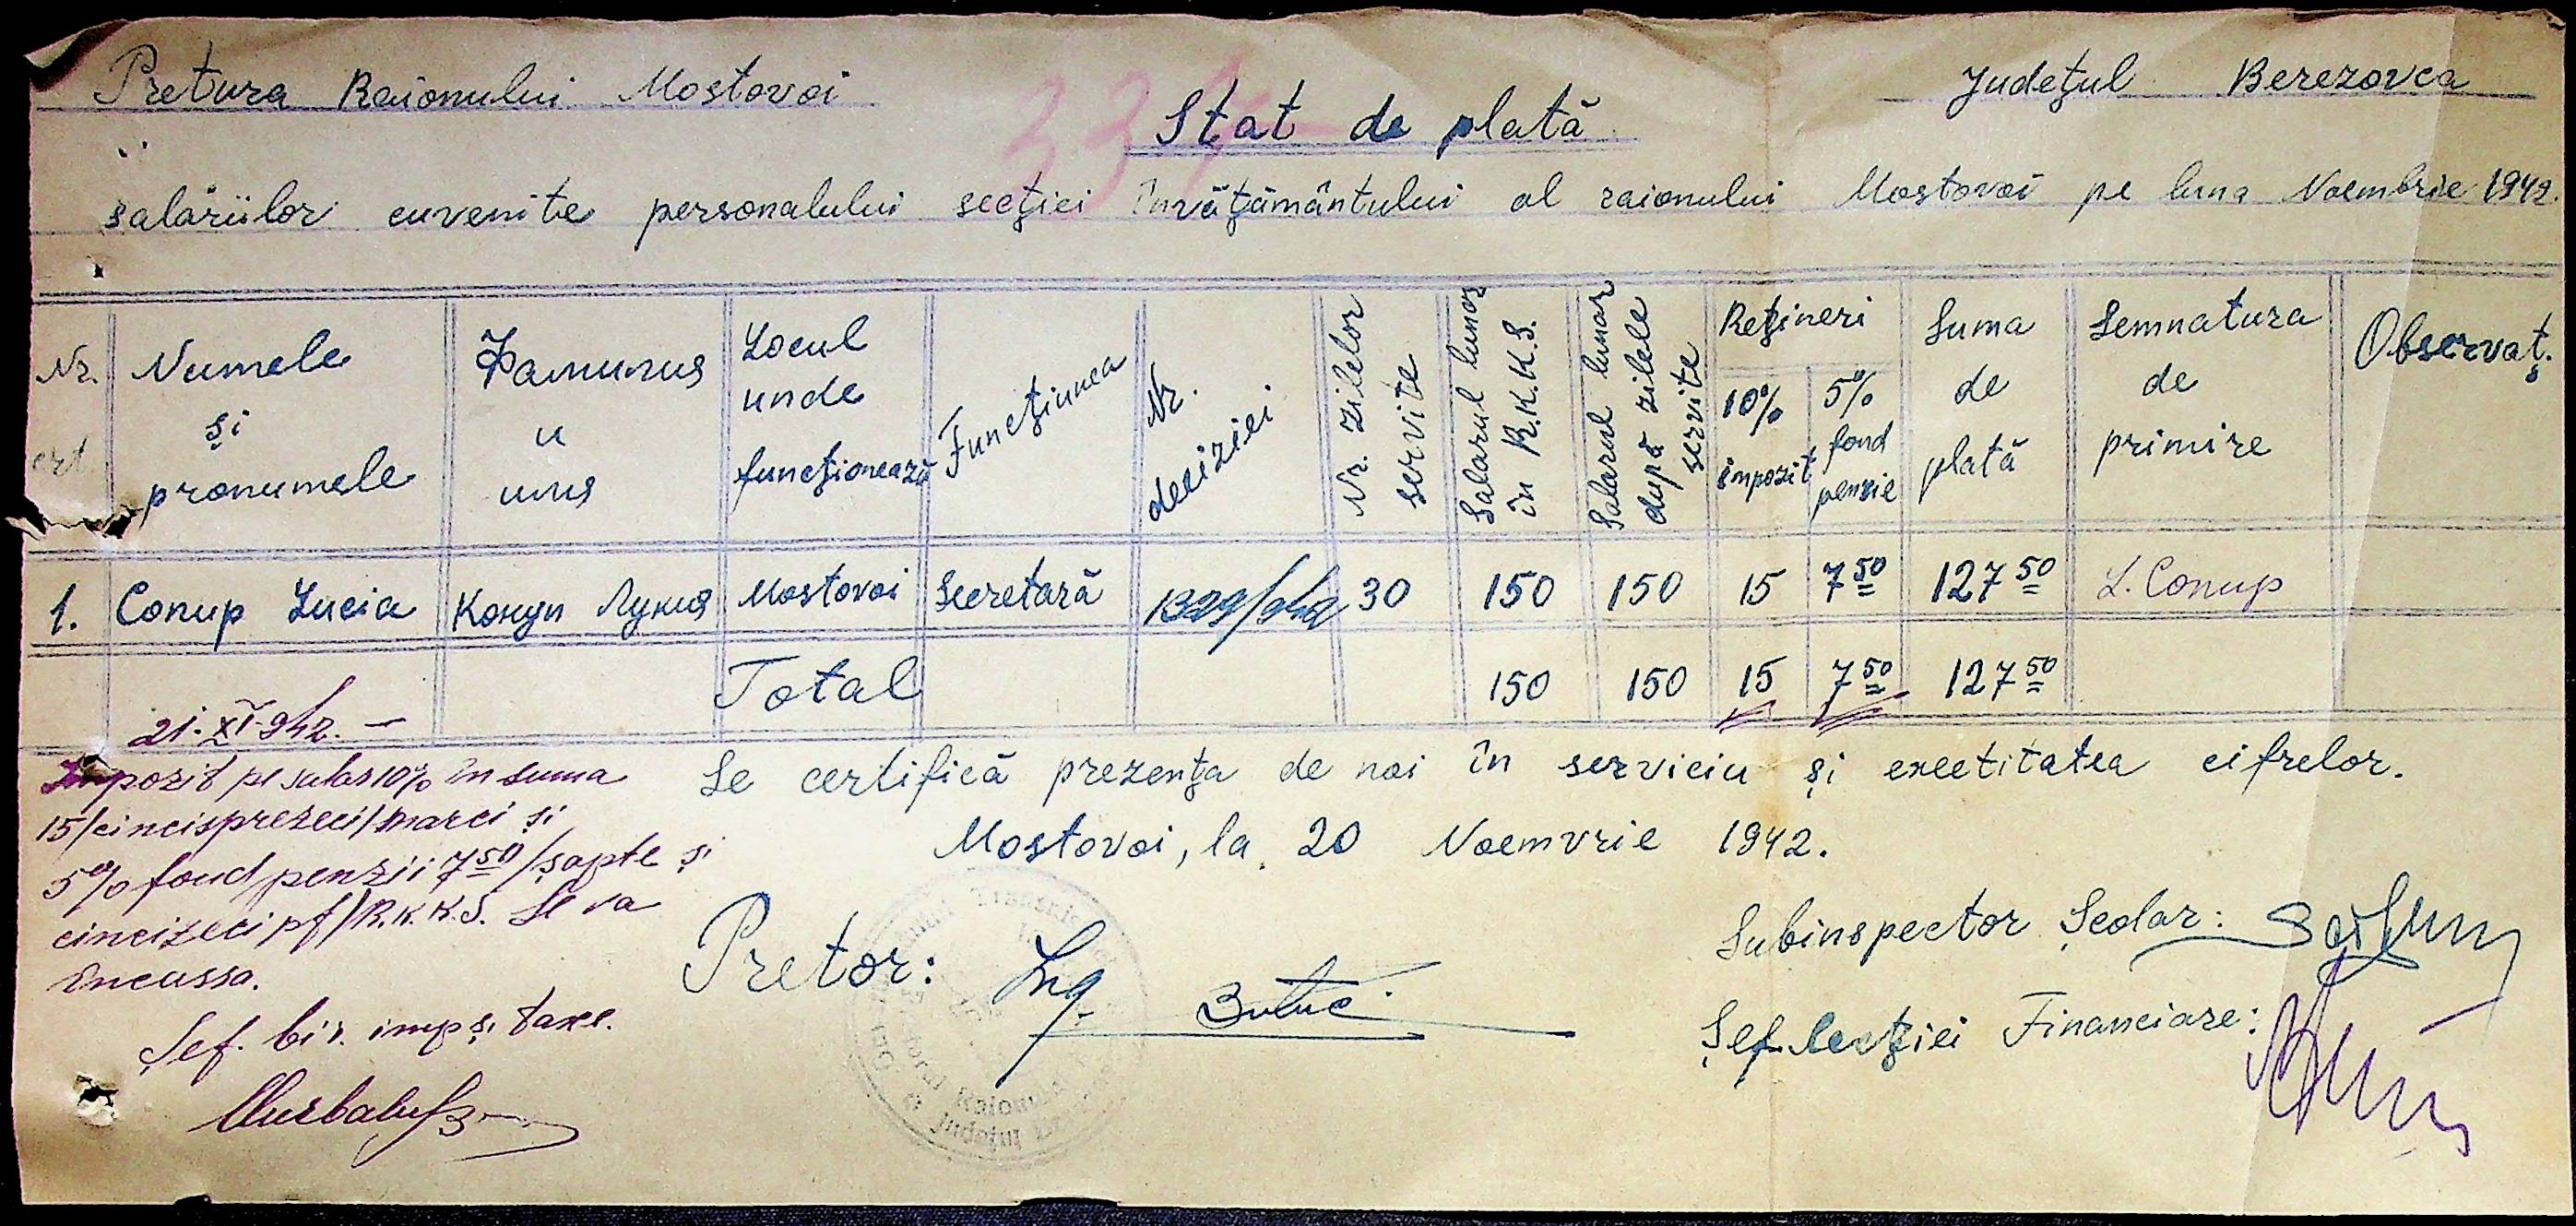 Pretura Raionului Mostovoi
Judeţul Berezovca
Stat de plată
salăriilor cuvenite personalului secţiei învăţământului al raionului Mostovoi pe luna Noembrie 1942.
Nr. crt.
Numele şi pronumele
Фамилия и имя
Locul unde funcţionează
Funcţiunea
Nr. deciziei
Nr. zilelor servite
Salarul lunar în R.K.K.S.
Salarul lunar după zilele servite
Reţineri
10% impozit
5% fond pensie
Suma de plată
Semnatura de primire
Observaţ.
1. Conup Lucia Конуп Лукия Mostovoi Secretară 1329/942 30 150 150 15 7 50 127 50 L. Conup
Total 150 150 15 7 50 127 50
21.XI.942. —
Impozit pe salar 10% în suma
15/cincisprezeci/marci și
5% fond penzii 7 50/șapte și
cincizeci pf/R.K.K.S. Se va
încassa.
Șef. bir. imp și taxe.
Se certifică prezenţa de noi în serviciu și exectitatea cifrelor.
Mostovoi, la 20 Noemvrie 1942.
Pretor: Ing.
Subinspector Școlar:
Șef Secţiei Financiare: